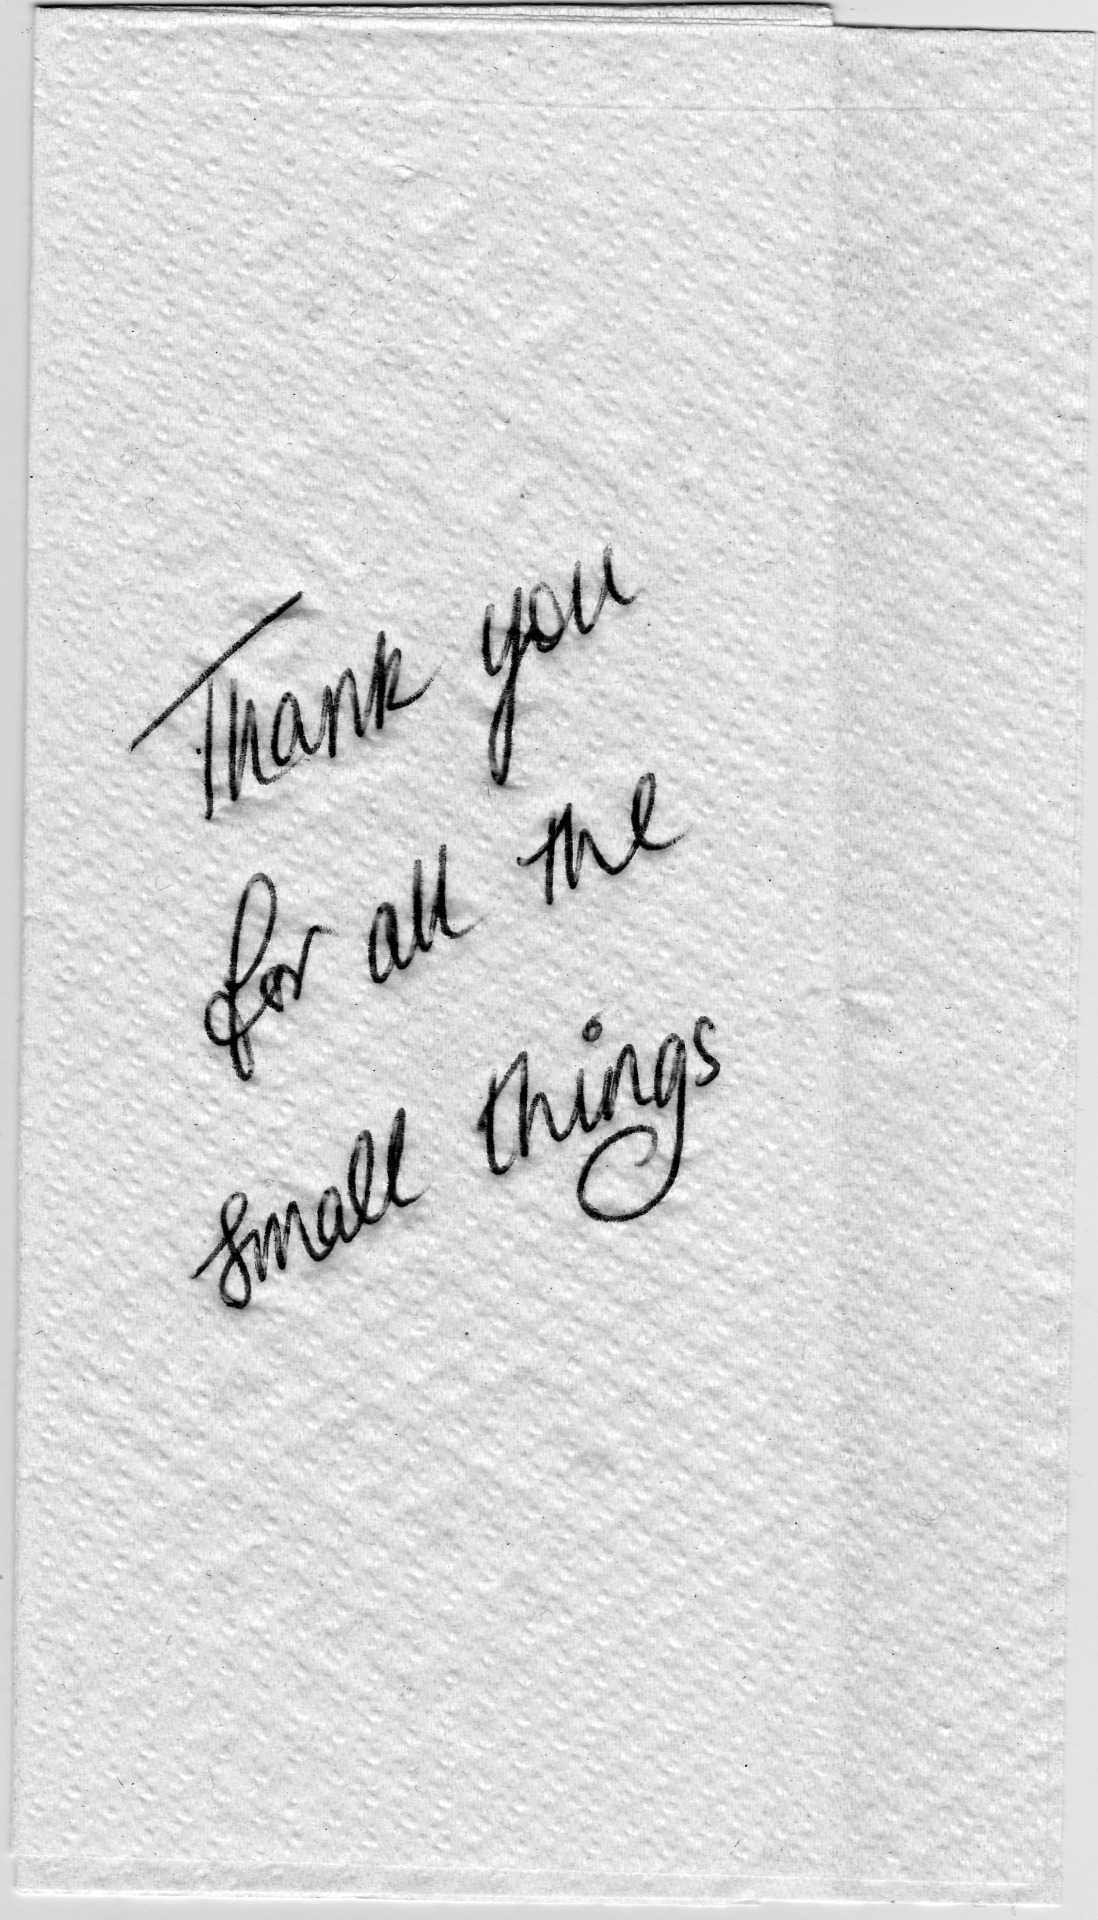 Thank you
for all the
small things